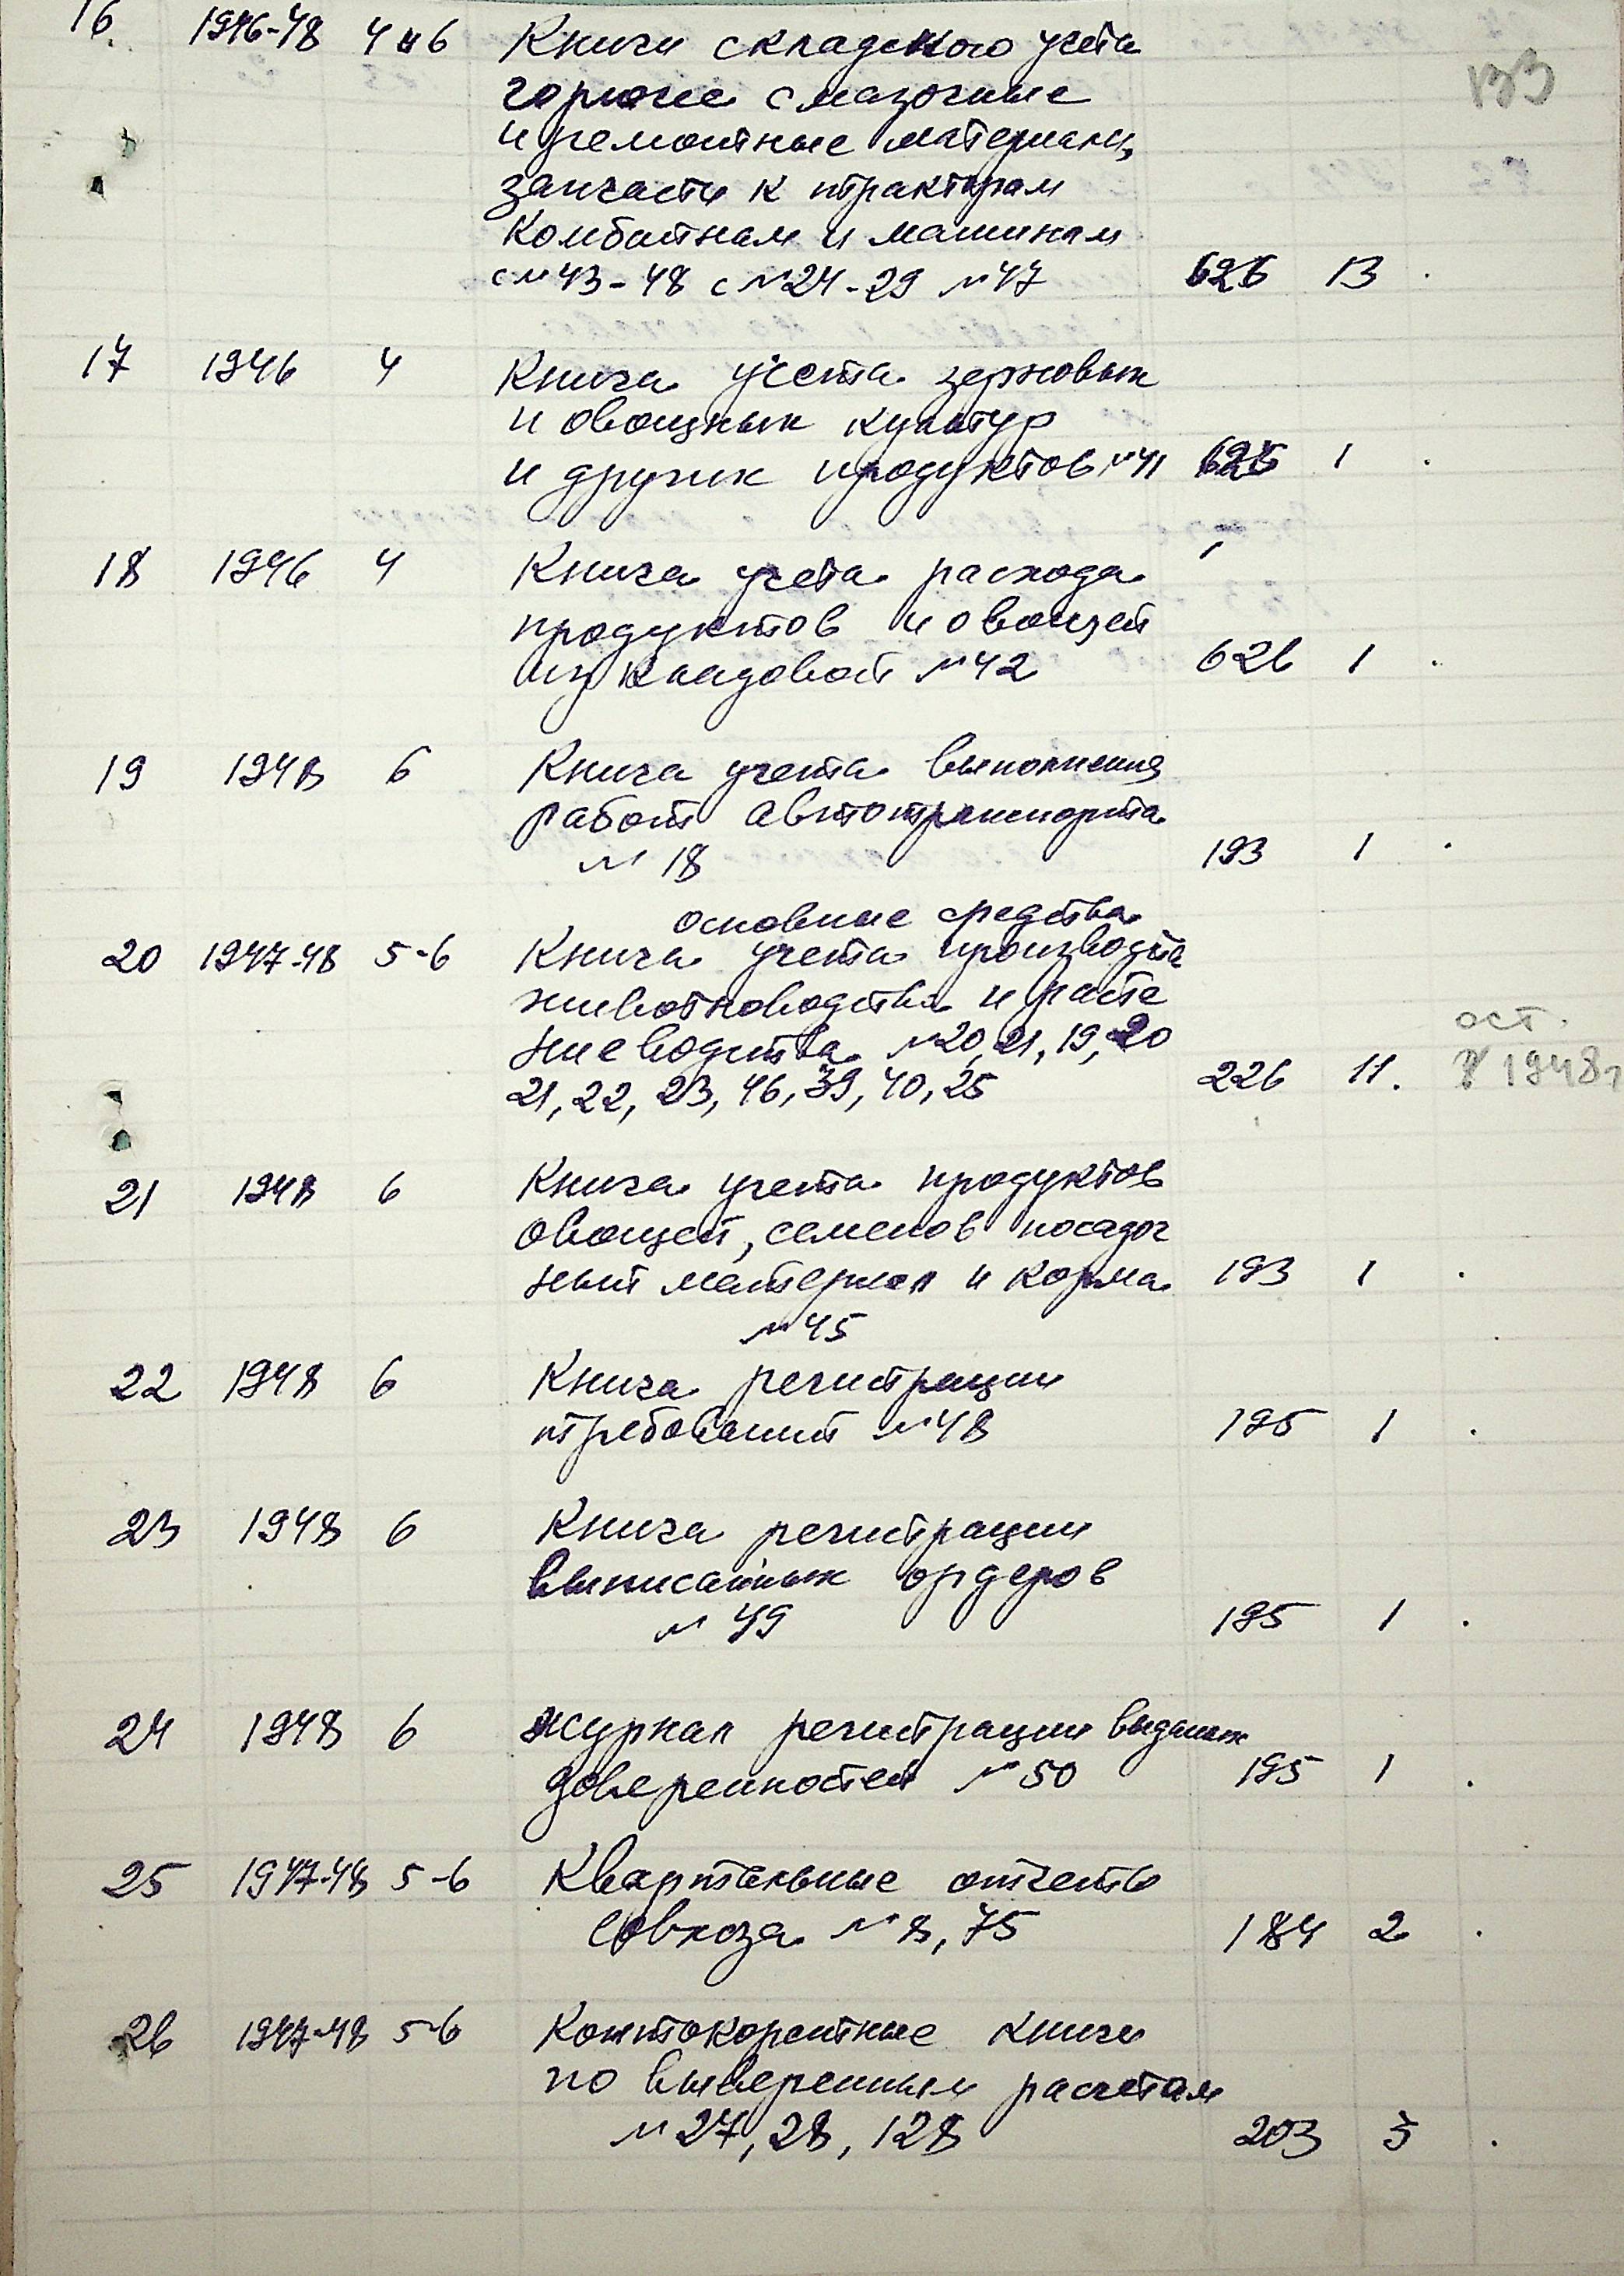 16. 1946-48 4 и 6 Книги складского учета
133
горюче смазочные
и ремонтные материалы,
запчасти к тракторам
комбайнам и машинам
с №43-48 с №24-29 №47 626 13 .
17 1946 4 Книга учета зерновых
и овощных культур
и других продуктов №41 626 1 .
18 1946 4 Книга учета расхода
продуктов и овощей
из кладовой №42 626 1 .
19 1948 6 Книга учета выполнения
работ автотранспорта
№ 18 193 1 .
основные средства
20 1947-48 5-6 Книга учета производств
животноводства и расте
ниеводства №20, 21, 19, 20
ост.
21, 22, 23, 46, 39, 40, 25 226 11. 1948г
21 1948 6 Книга учета продуктов
овощей, семенов посадоч
ный материал и корма 193 1 .
№45
22 1948 6 Книга регистрации
требований №48 195 1 .
23 1948 6 Книга регистрации
выписанных ордеров
№ 49 195 1 .
24 1948 6 Журнал регистрации выданых
доверенностей № 50 195 1 .
25 1947-48 5-6 Квартальные отчеты
совхоза № 8, 75 184 2 .
26 1947-48 5-6 Контокорентные книги
по выверенным расчетам
№ 27, 28, 128 203 3 .